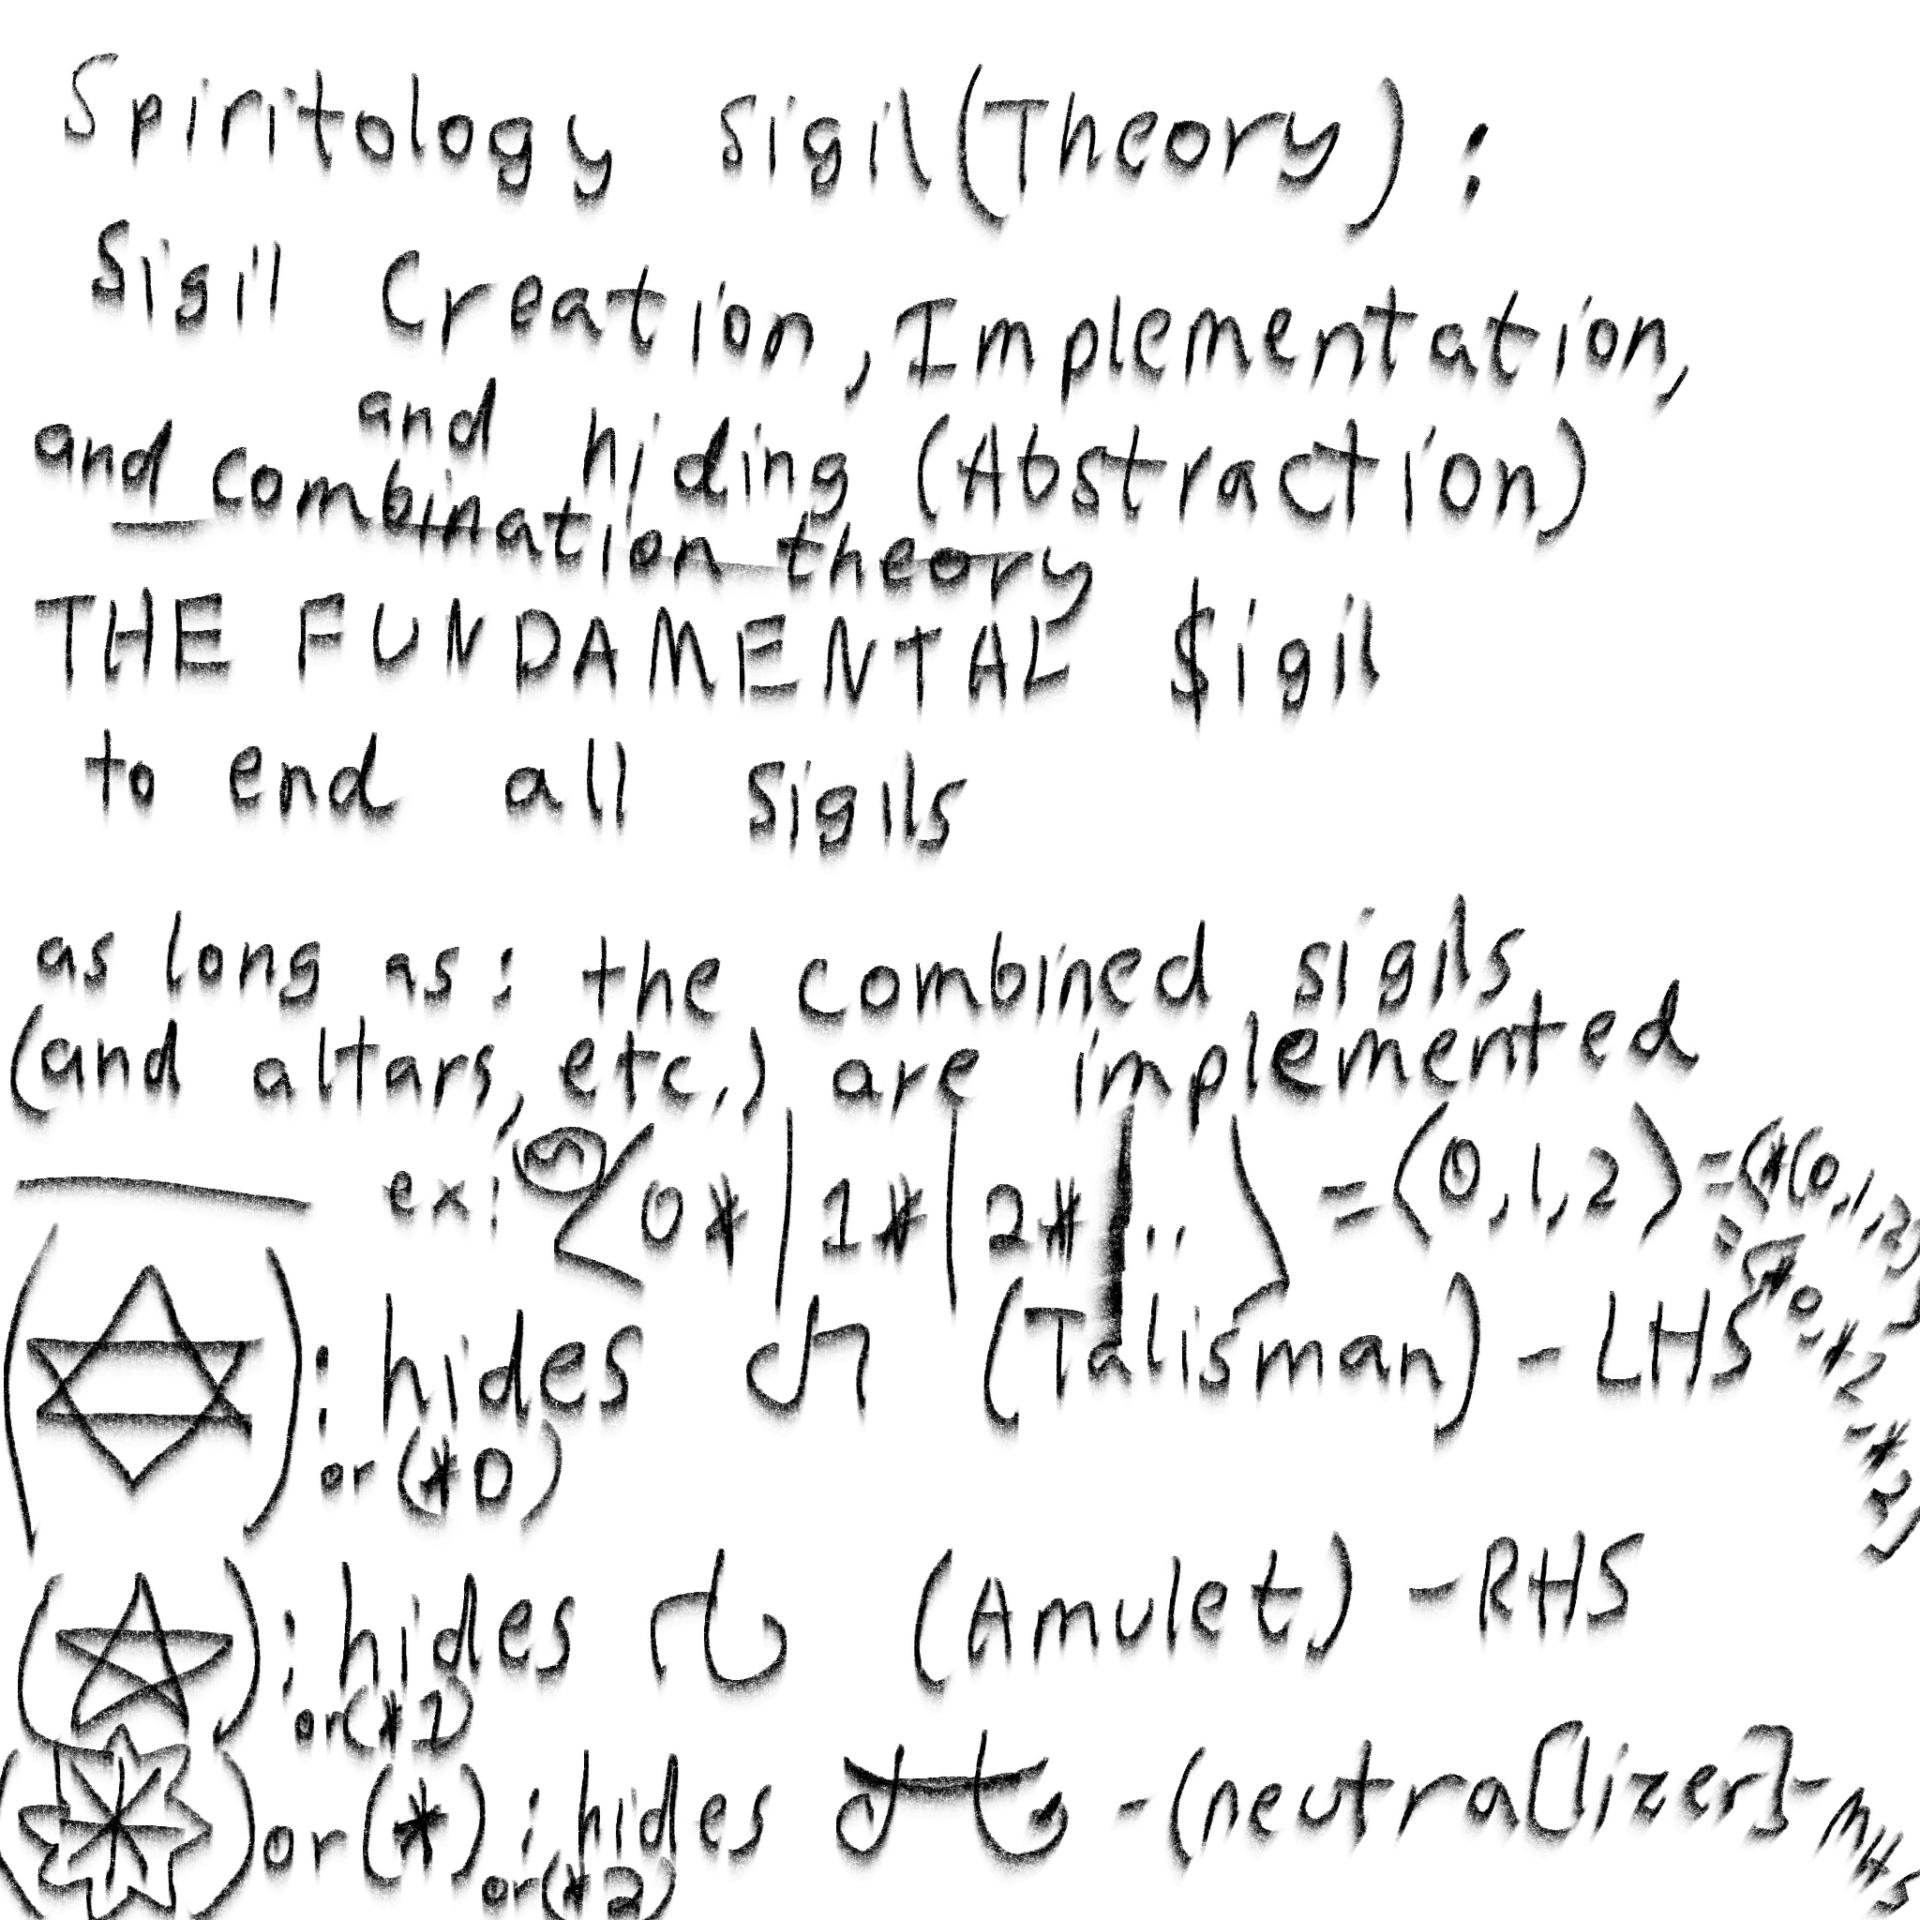 Spiritology Sigil(Theory):
Sigil Creation, Implementation,
and hiding (Abstraction)
and combination theory
THE FUNDAMENTAL $igil
to end all Sigils
as long as: the combined sigils
(and altars, etc.) are implemented
ex: 0* | 1* | 2* | .. > = <0,1,2> =
: hides (Talisman) - LHS
or (*0)
: hides (Amulet) - RHS
or (*1)
or (*) : hides - (neutra[lizer] - MHS
or (*2)